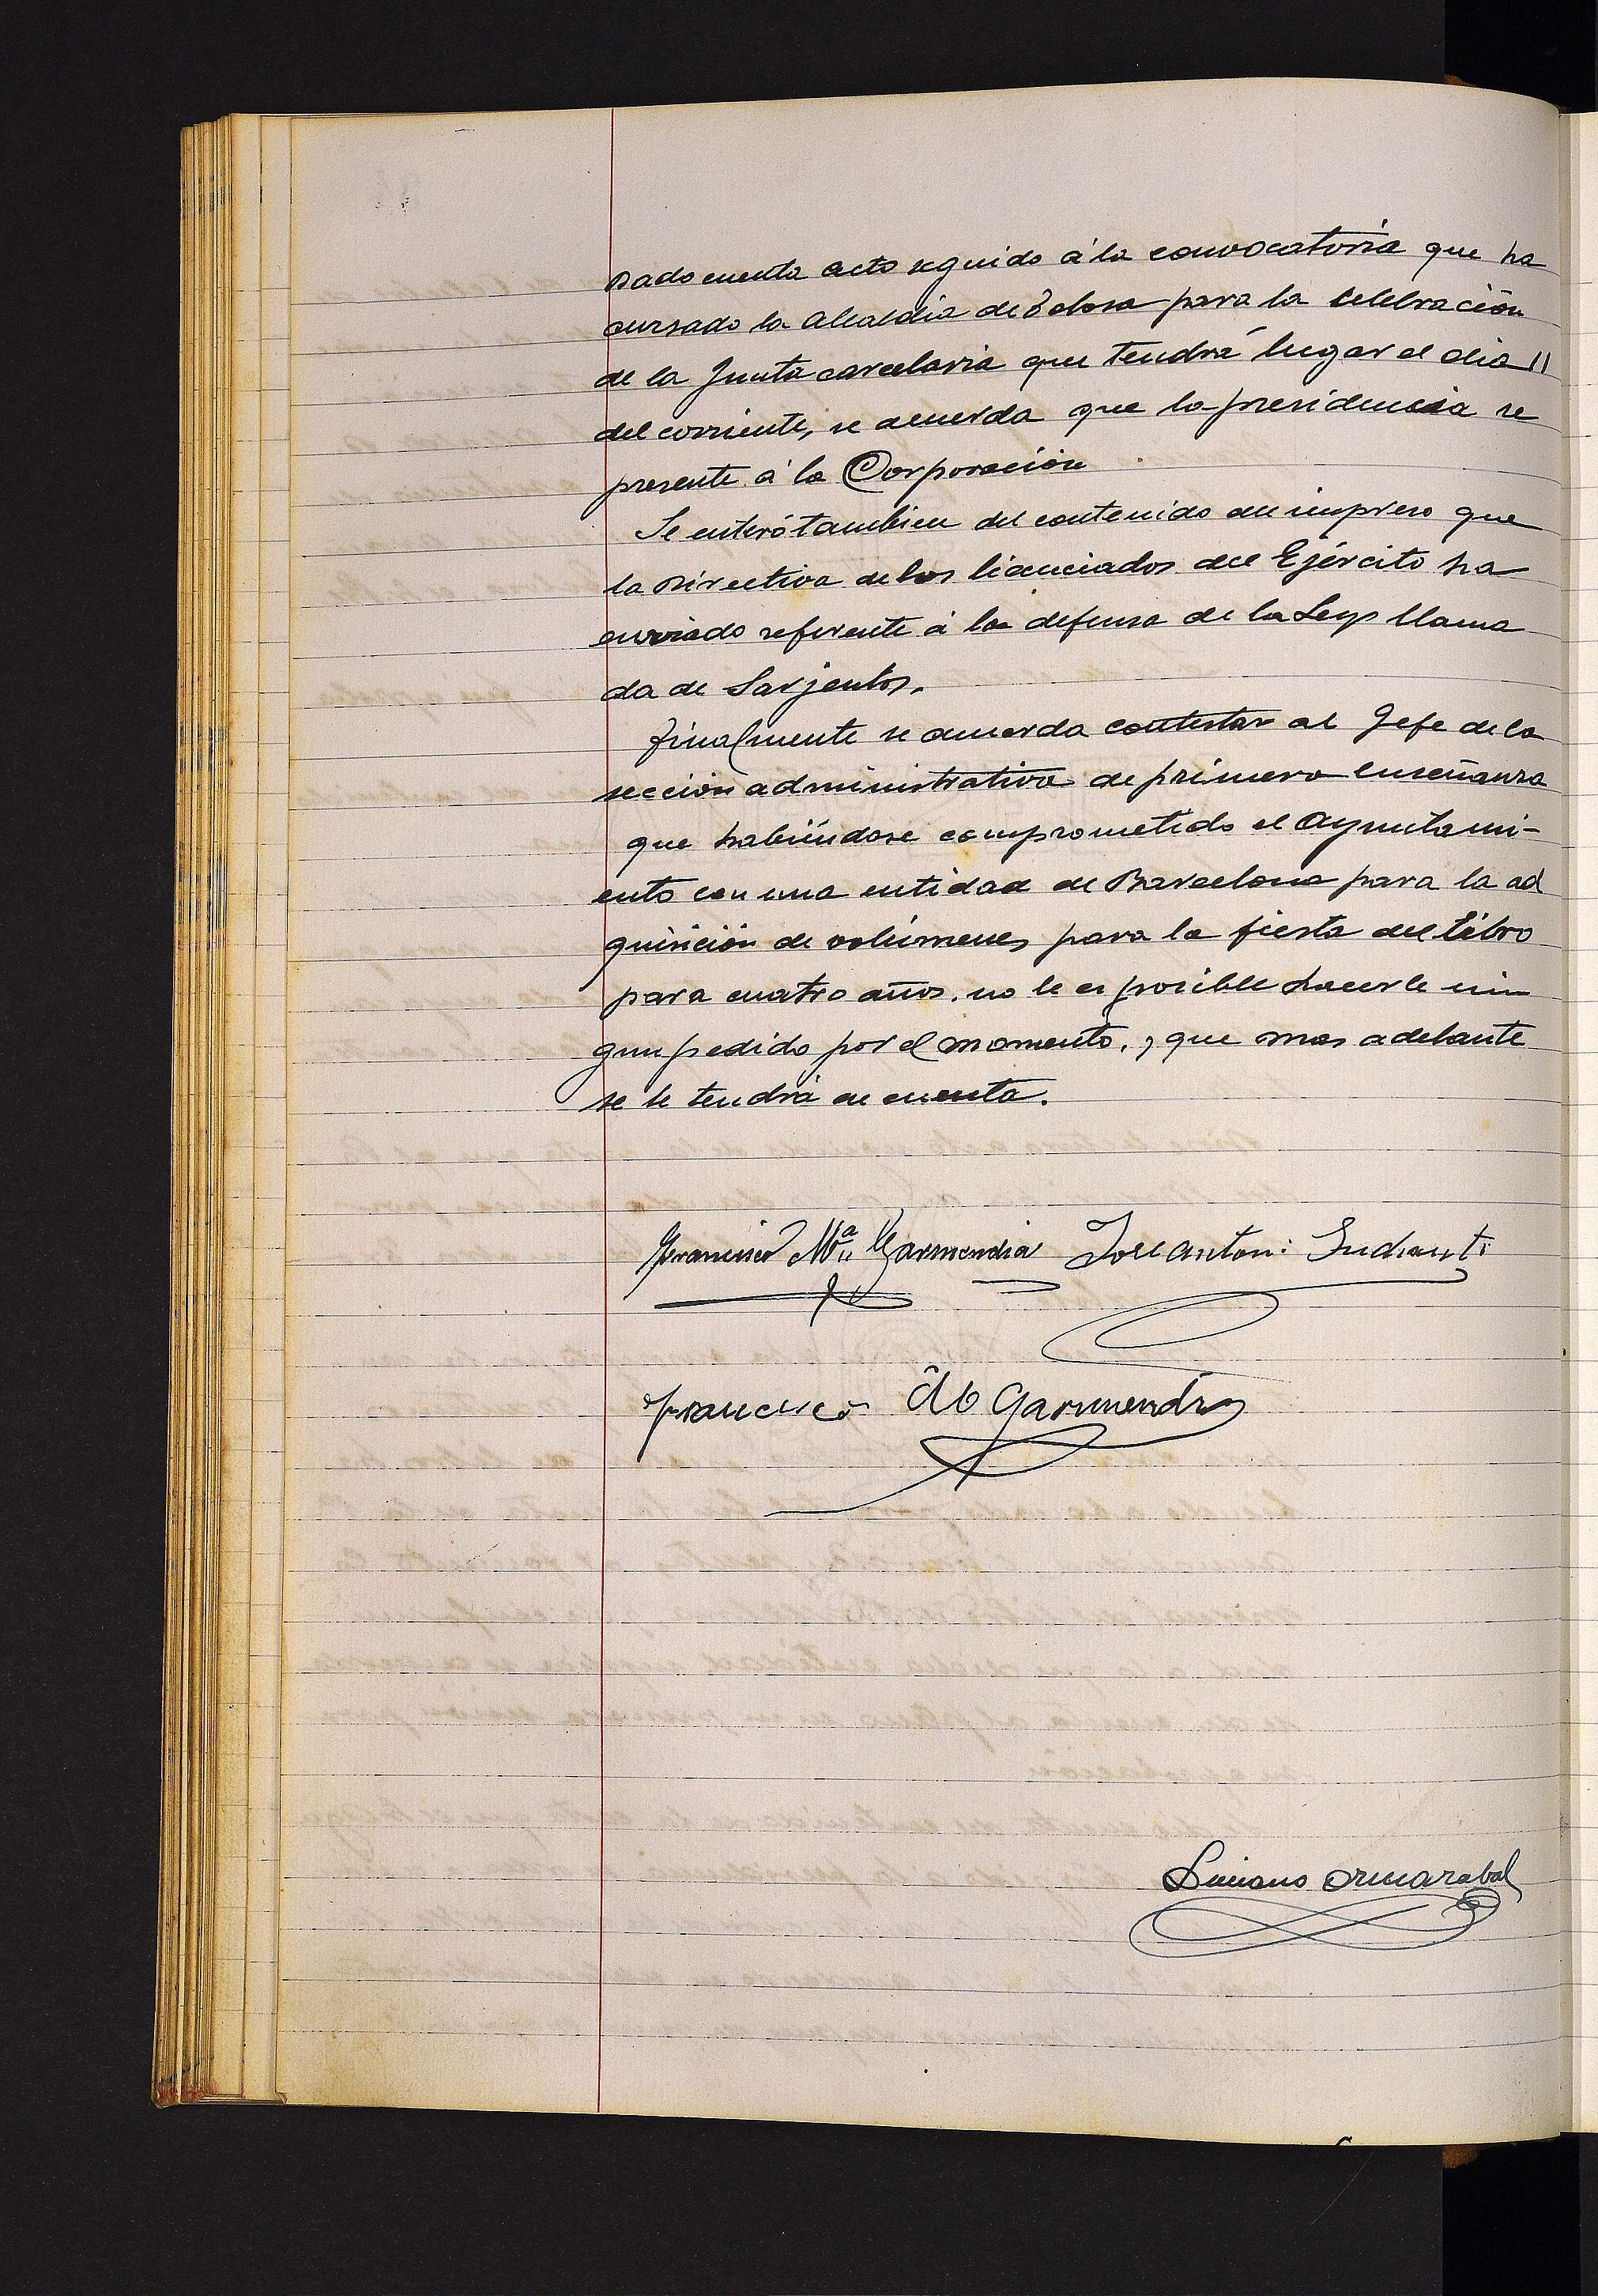 Dado cuenta acto seguido á la convocatoria que ha
cursado la Alcaldia de Tolosa para la celebración
de la Junta carcelaria que tendrá lugar el dia 11
del corriente, se acuerda que la presidencia re
presente á la Corporación
Se enteró tambien del contenido del impreso que
la Directiva de los licenciados del Ejército ha
enviado referente á la defensa de la Ley llama
da de Sarjentos.
Finalmente se acuerda contestar al Jefe de la
sección administrativa de primera enseñanza
que habiéndose comprometido el Ayuntami-
ento con una entidad de Barcelona para la ad
quisición de volúmenes para la fiesta del libro
para cuatro años, no le es posible hacerle nin
gun pedido por el momento, y que mas adelante
se le tendrá en cuenta.
Francisco Mª Garmendia Jose Antoni
Francisco Garmendia
Luciano Ormazabal